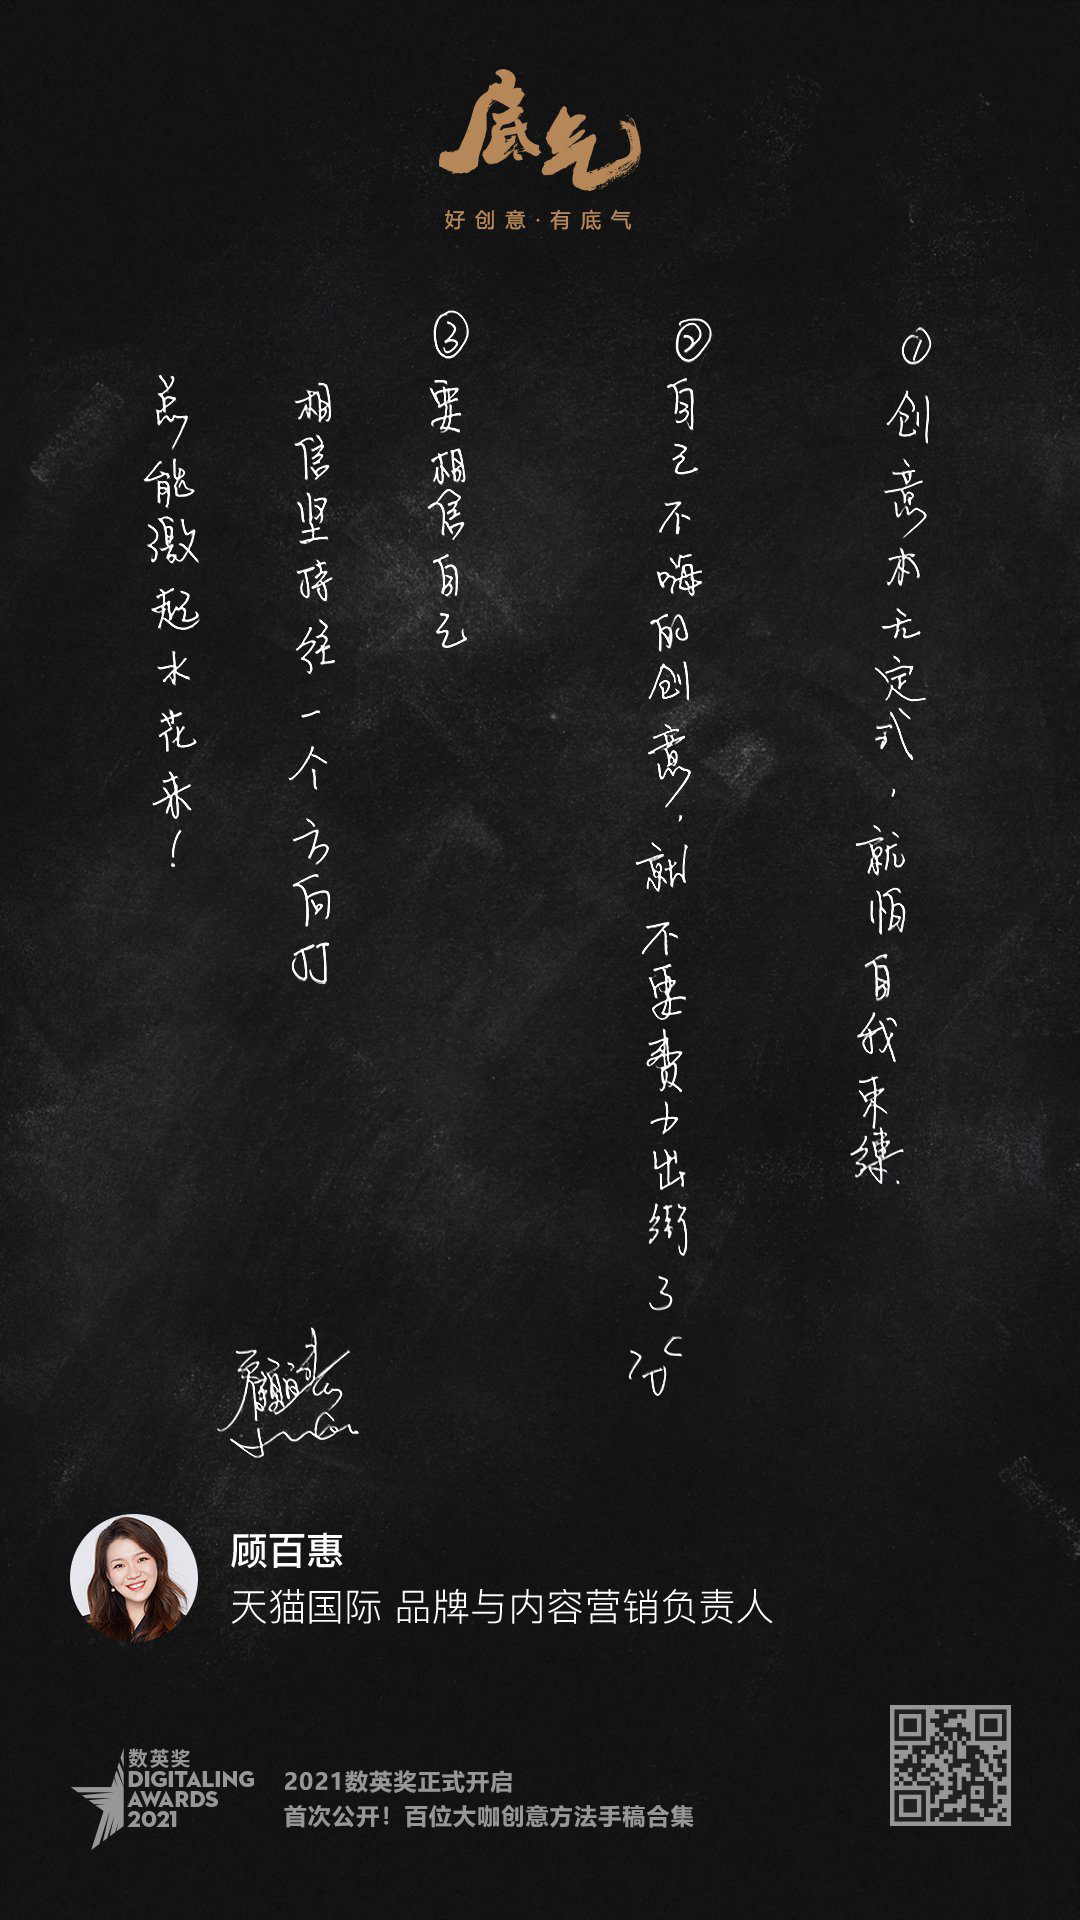 底气
好创意·有底气
① 创意本无定式，就怕自我束缚.
② 自己不嗨的创意，就不要费力出街了
③ 要相信自己
相信坚持往一个方向打
总能激起水花来！
顾百惠
顾百惠
天猫国际 品牌与内容营销负责人
数英奖
DIGITALING
AWARDS
2021
2021数英奖正式开启
首次公开！百位大咖创意方法手稿合集